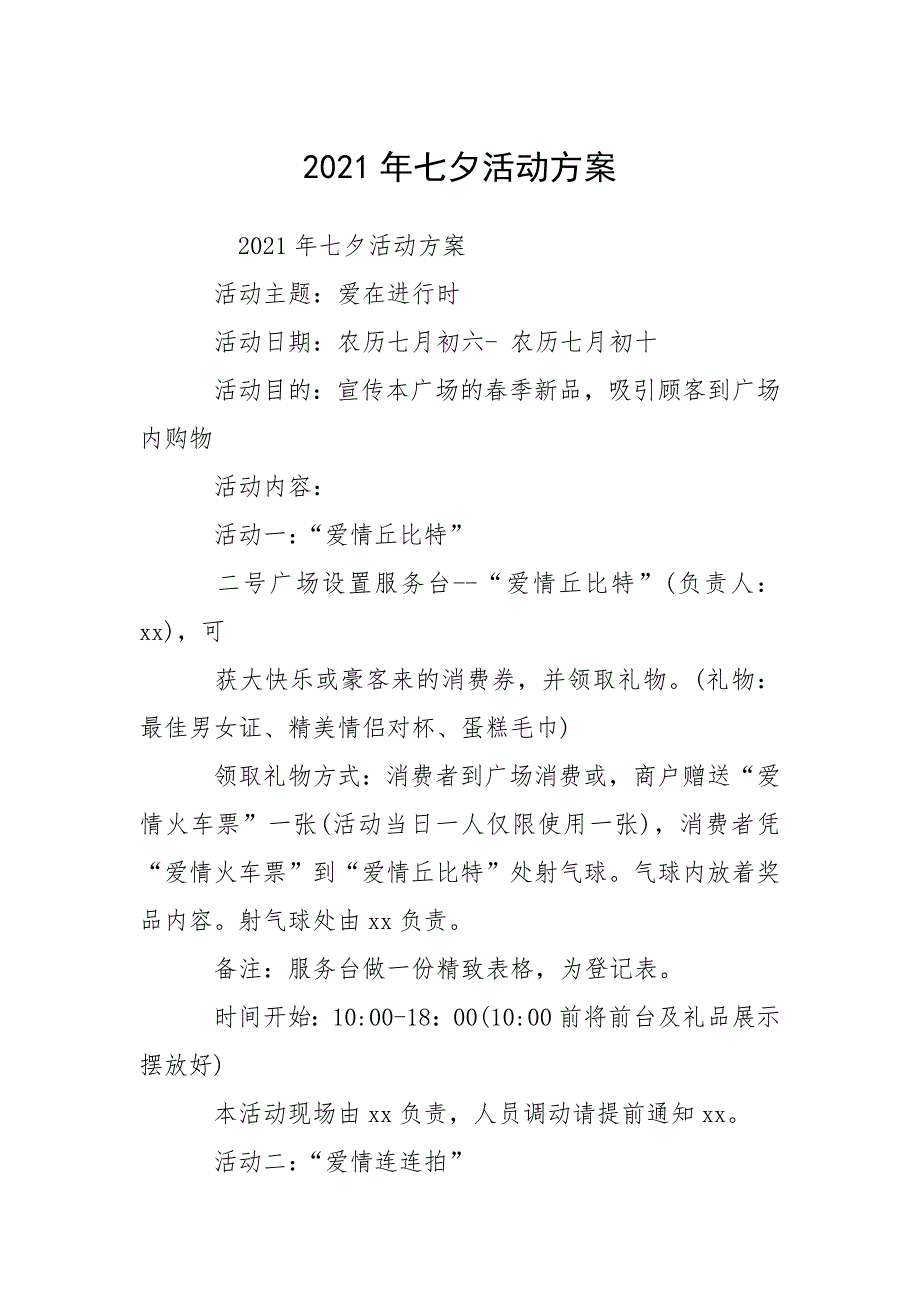 2021年七夕活动方案
2021年七夕活动方案
活动主题：爱在进行时
活动日期：农历七月初六- 农历七月初十
活动目的：宣传本广场的春季新品，吸引顾客到广场
内购物
活动内容：
活动一：“爱情丘比特”
二号广场设置服务台--“爱情丘比特”(负责人：
xx)，可
获大快乐或豪客来的消费券，并领取礼物。(礼物：
最佳男女证、精美情侣对杯、蛋糕毛巾)
领取礼物方式：消费者到广场消费或，商户赠送“爱
情火车票”一张(活动当日一人仅限使用一张)，消费者凭
“爱情火车票”到“爱情丘比特”处射气球。气球内放着奖
品内容。射气球处由xx负责。
备注：服务台做一份精致表格，为登记表。
时间开始：10:00-18：00(10:00前将前台及礼品展示
摆放好)
本活动现场由xx负责，人员调动请提前通知xx。
活动二：“爱情连连拍”